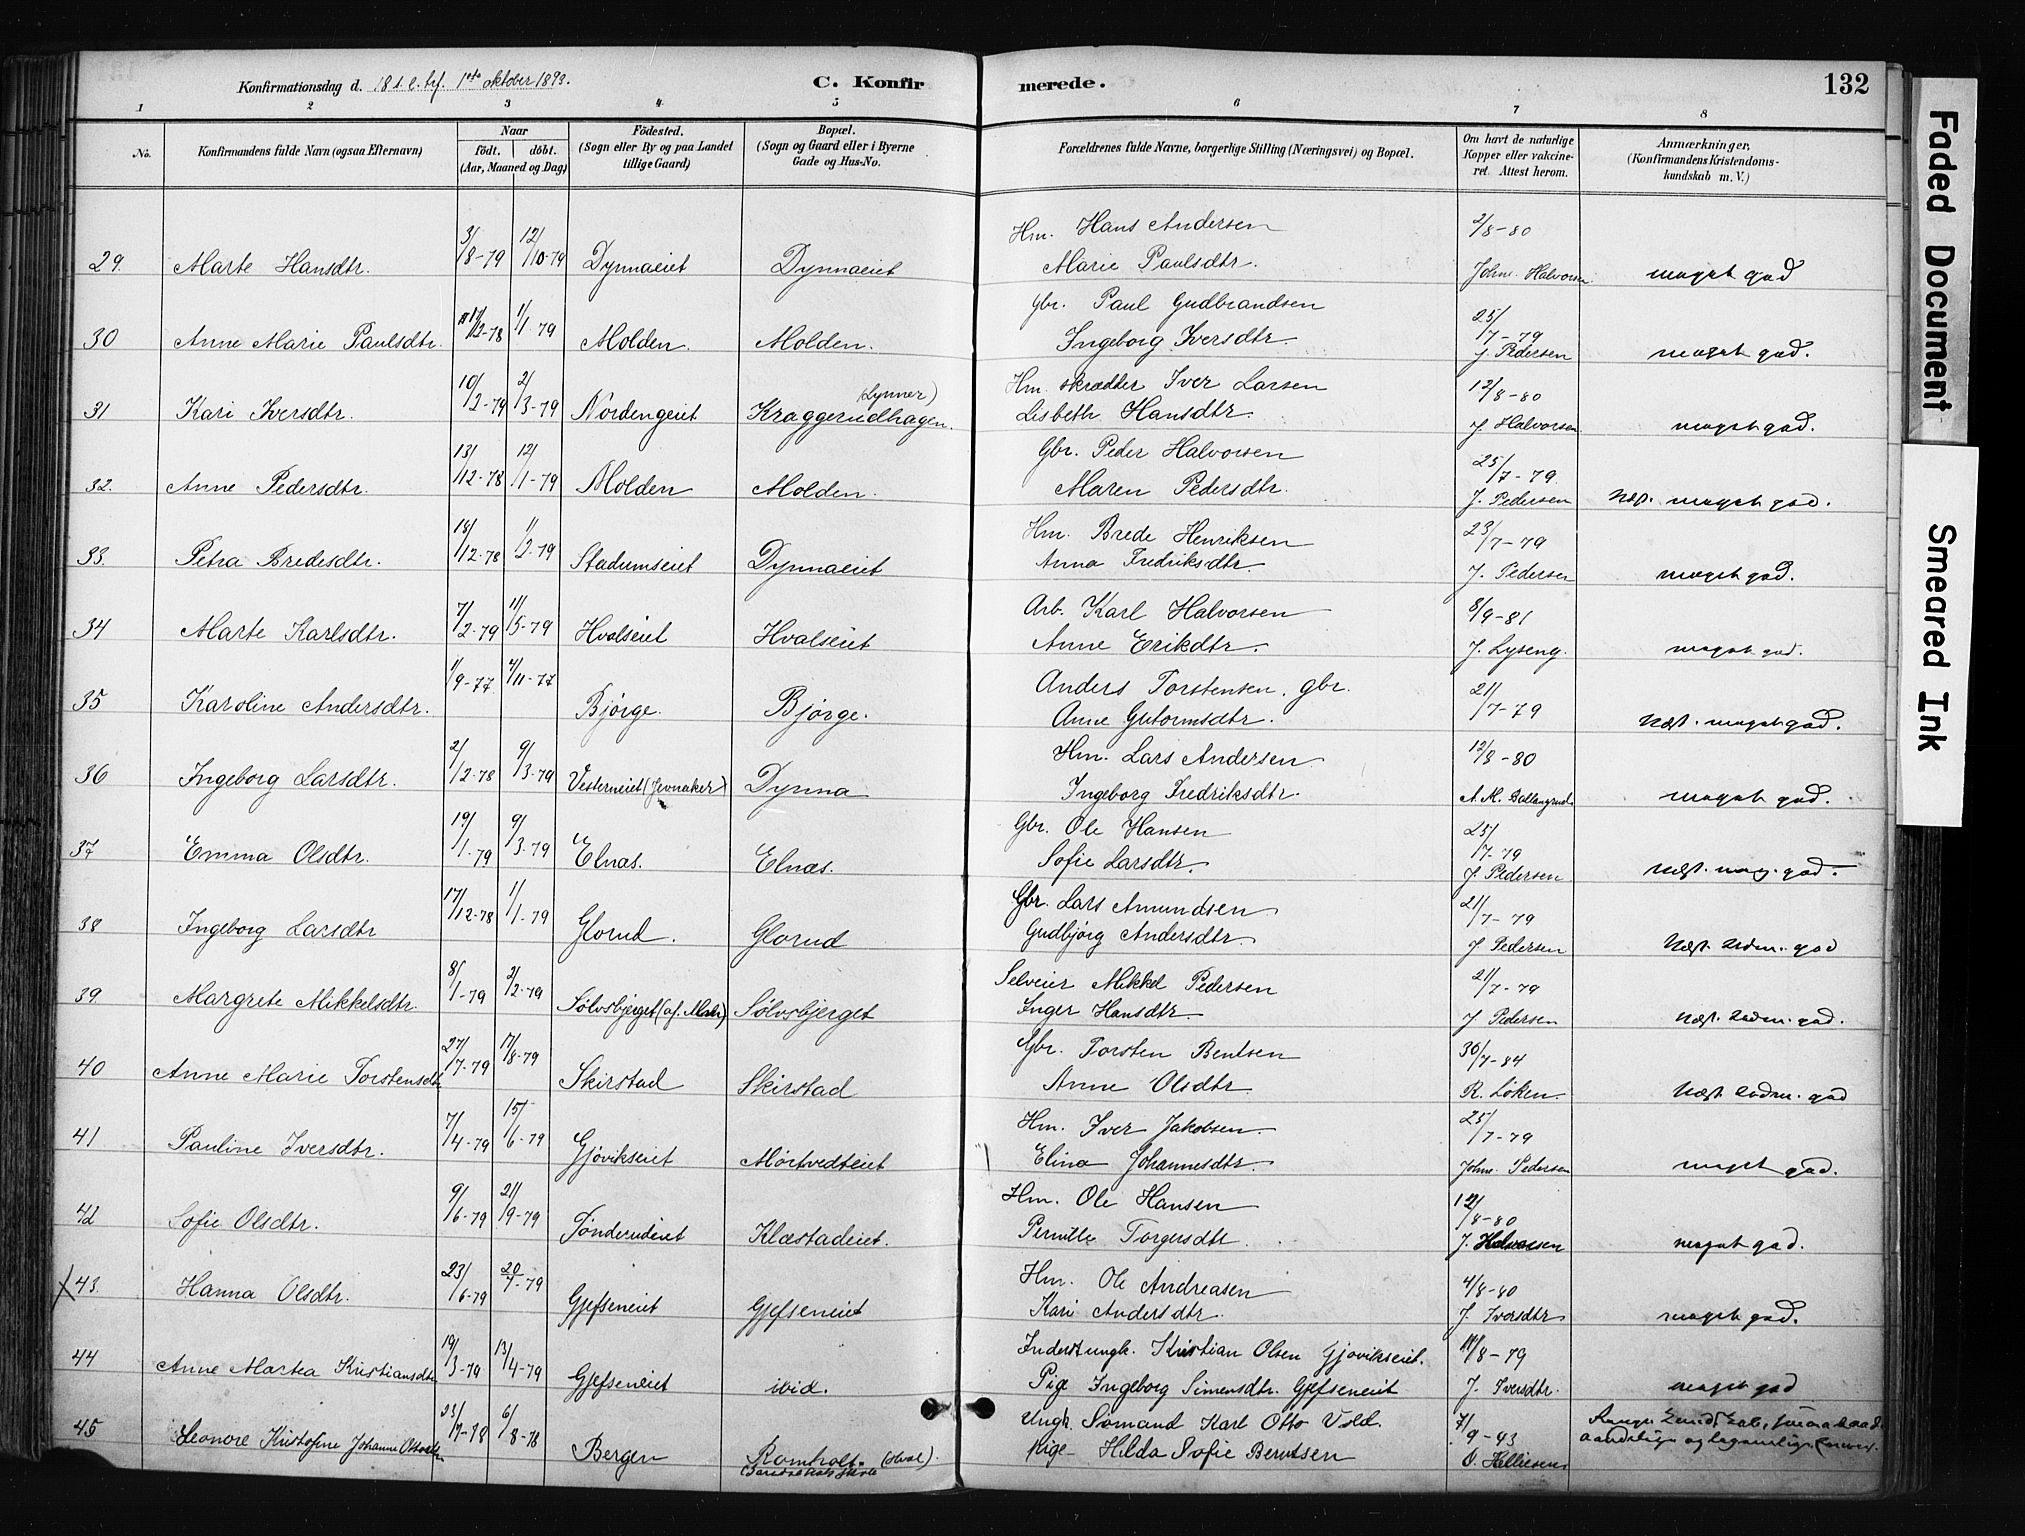 Konfirmationsdag d. 18 s. e. tr. 1ste oktober 1893. C. Konfirmerede. 132
1 2 3 4 5 6 7 8
No. Konfirmandens fulde Navn (ogsaa Efternavn) Naar födt. döbt. (Aar, Maaned og Dag) Födested. (Sogn eller By og paa Landet tillige Gaard) Bopæl. (Sogn og Gaard eller i Byerne Gade og Hus-No. Forældrenes fulde Navne, borgerlige Stilling (Næringsvei) og Bopæl. Om havt de naturlige Kopper eller vakcineret. Attest herom. Anmærkninger. (Konfirmandens Kristendomskundskab m. V.)
29. Marte Hansdtr. 3/8-79 12/10-79 Dynnaeiet Dynnaeiet Hm. Hans Andersen 2/8-80
Marie Paulsdtr. John. Halvorsen meget god
30 Anne Marie Paulsdtr. 17/12-78 1/1-79 Molden. Molden. Gbr. Paul Gudbrandsen 25/7-79
Ingeborg Iversdtr. J. Pedersen meget god.
31 Kari Iversdtr. 10/2-79 2/3-79 Nordengeiet Kraggerudhagen. (Lynner) Hm. skrædder Iver Larsen 12/8-80
Lisbeth Hansdtr. J Halvorsen. meget god.
32. Anne Pedersdtr. 13/12-78 12/1-79 Molden Molden. Gbr. Peder Halvorsen 25/7-79.
Maren Pedersdtr. J. Pedersen Næst. meget god.
33. Petra Bredesdtr. 18/12-78 1/2-79 Stadumseiet Dynnaeiet Hm. Brede Henriksen 23/7-79
Anna Fredriksdtr. J. Pedersen meget god.
34 Marte Karlsdtr. 7/2-79 11/5-79 Hvalseiet Hvalseiet Arb. Karl Halvorsen 8/9-81
Anne Erikdtr. J. Lyseng. meget god.
35 Karoline Andersdtr. 1/9-77 4/11-77 Bjørge. Bjørge. Anders Torstensen, gbr. 21/7-79
Anne Gutormsdtr. Næst. meget god.
36 Ingeborg Larsdtr. 2/12-78 9/3-79 Vesterneiet (Jevnaker) Dynna Hm. Lars Andersen 12/8-80
Ingeborg Fredriksdtr. A. M. Ballangrud. meget god.
37 Emma Olsdtr. 19/1-79 9/3-79 Elnæs. Elnæs. Gbr. Ole Hansen 25/7-79
Sofie Larsdtr. J. Pedersen Næst. meg. god.
38 Ingeborg Larsdtr 17/12-78 1/1-79 Glorud. Glorud Gbr. Lars Amundsen 21/7-79
Gudbjørg Andersdtr. J. Pedersen Næst. udm. god
39 Margrete Mikkelsdtr. 8/1-79 2/2-79 Sølvsbjerget Sølvsbjerget Selveier Mikkel Pedersen 21/7-79
Inger Hansdtr. J Pedersen Næst. udm. god.
40 Anne Marie Torstensdtr 27/7-79 17/8-79 Skirstad Skirstad Gbr. Torsten Bentsen 30/7-84
Anne Olsdtr. R. Løken. Næst. udm. god
41 Pauline Iversdtr. 7/4-79 15/6-79 Gjøvikseiet Mørtvedteiet Hm. Iver Jakobsen. 25/7-79
Elina Johannesdtr. Johne. Pedersen meget god.
42 Sofie Olsdtr. 9/6-79 21/9-79 Tønderudeiet Klæstadeiet. Hm. Ole Hansen 12/8-80
Pernille Torgersdtr. J. Halvorsen meget god.
43. Hanna Olsdtr. 23/6-79 20/7-79 Gjefseneiet Gjefseneiet Hm. Ole Andreasen 4/8-80
Kari Andersdtr. J. Iversdtr meget god.
44 Anne Martea Kristiansdtr 19/3-79 13/4-79 Gjefseneiet ibid. Inderst ungk. Kristian Olsen Gjøvikseiet. 11/8-79
Pige Ingeborg Simensdtr. Gjefseneiet J. Iversdtr. meget god
45 Leonore Kristofine Johanne Ottosdtr 23/7-78 6/8-78 Bergen Romholt. (Hval). Ungk. Sømand Karl Otto Vold. 7/9-93
Pige Hilda Sofie Berntsen O. Hellesen